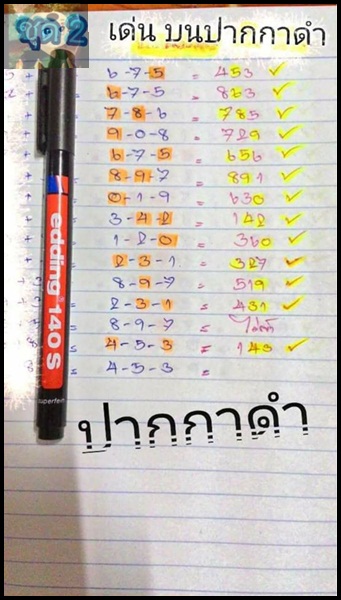 ชุด 2
เด่น บนปากกาดำ
6-7-5 = 453 ✓
6-7-5 = 863 ✓
7-8-6 = 785 ✓
9-0-8 = 729 ✓
6-7-5 = 656 ✓
8-9-7 = 891 ✓
0-1-9 = 630 ✓
3-4-2 = 142 ✓
1-2-0 = 360 ✓
2-3-1 = 327 ✓
8-9-7 = 519 ✓
2-3-1 = 431 ✓
8-9-7 =
4-5-3 = 143 ✓
4-5-3 =
edding 140 S
superfein
ปากกาดำ